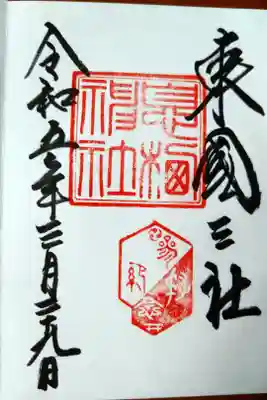 東國三社
息栖
神社
令和五年三月二十九日